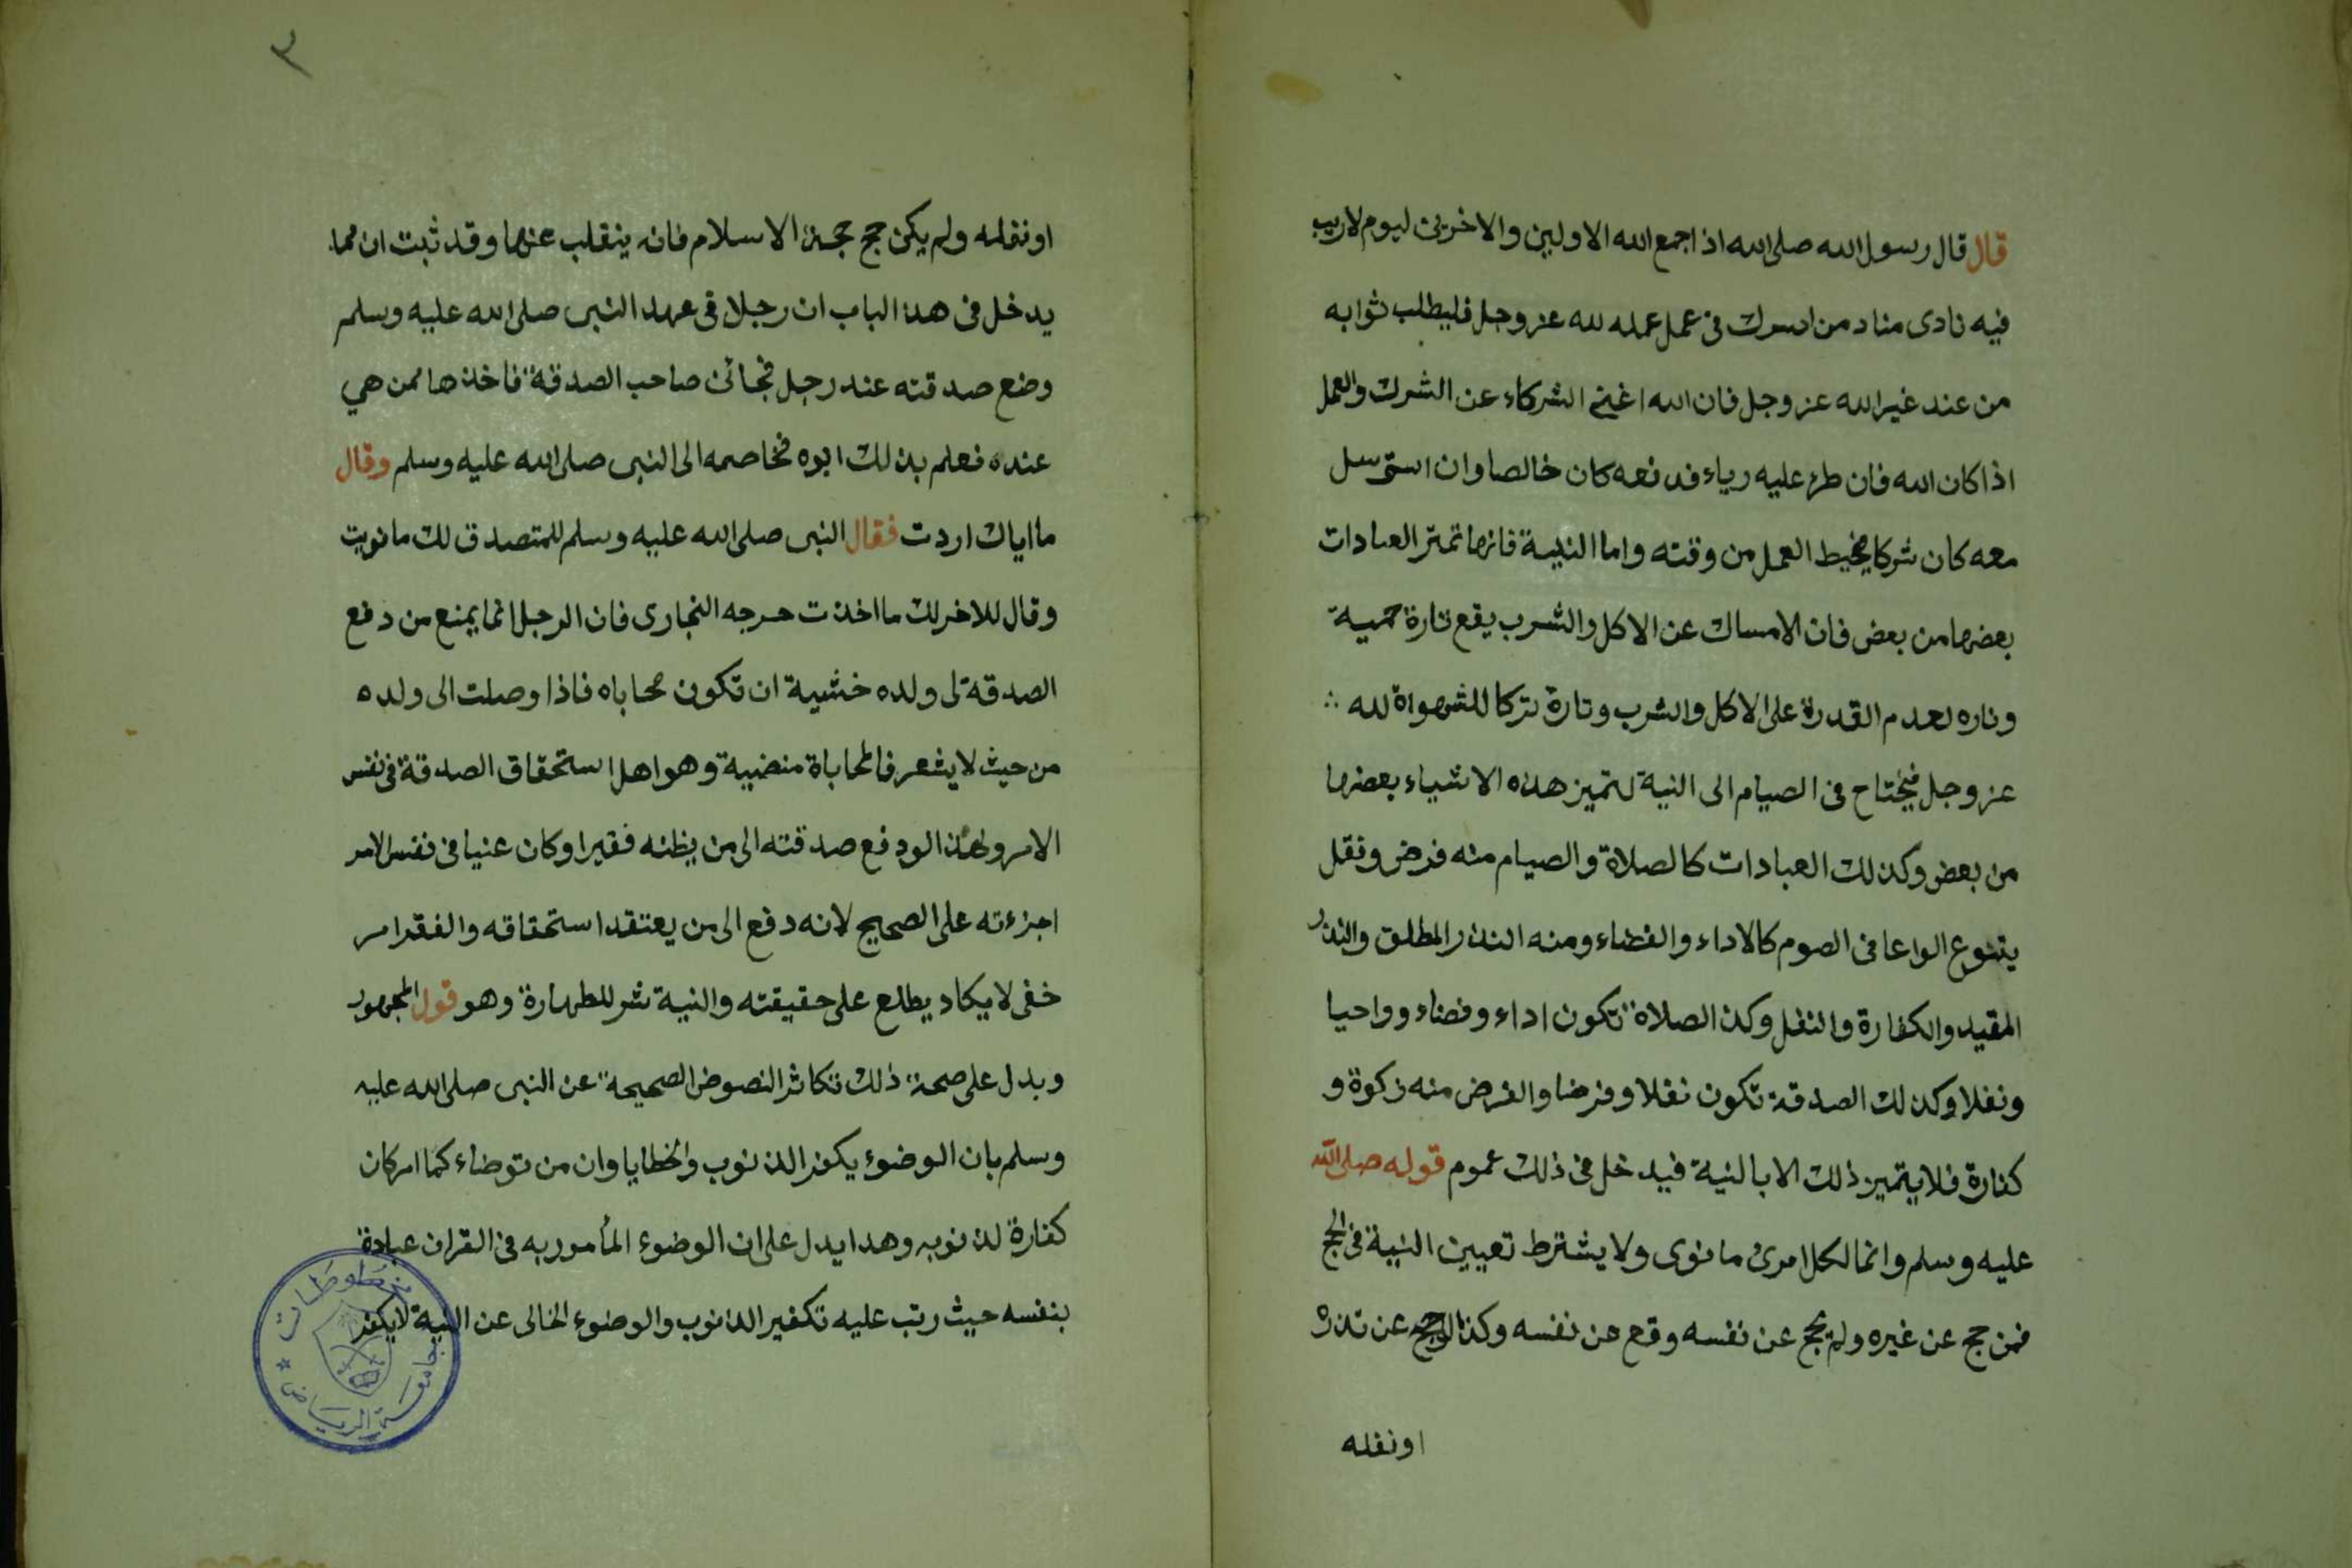 قال قال رسول الله صلى الله اذا جمع الله الاولين والاخرين ليوم لاريب
فيه نادى مناد من اسرك فى عمل عمله لله عز وجل فليطلب ثوابه
من عند غير الله عز وجل فان الله اغنى الشركاء عن الشرك والعمل
اذا كان الله فان طرء عليه رياء فدفعه كان خالصا وان استرسل
معه كان شركا يحيط العمل من وقته واما النية فانها تميز العبادات
بعضها من بعض فان الامساك عن الاكل والشرب يقع تارة حمية
وتاره لعدم القدرة على الاكل والشرب وتارة تركا للشهواة لله ؞
عز وجل فيحتاح فى الصيام الى النية لتميز هذه الاشياء بعضها
من بعض وكذلك العبادات كالصلاة والصيام منه فرض ونفل
يتنوع الواعا فى الصوم كالاداء والقضاء ومنه النذر المطلق والنذر
المقيد والكفارة والنفل وكذ الصلاة تكون اداء وقضاء وواحبا
ونفلا وكذلك الصدقة تكون نفلا وفرضا والفرض منه زكوة و
كفارة فلا يتميز ذلك الا بالنية فيدخل فى ذلك عموم قوله صلى الله
عليه وسلم وانما لكل امرئ ما نوى ولا يشترط تعيين النية فى الحج
فمن حج عن غيره ولم يحج عن نفسه وقع عن نفسه وكذا لوحج عن نذره
او نفله
٣
او نفله ولم يكن حج حجة الاسلام فانه ينقلب عنها وقد ثبت ان مما
يدخل فى هذ الباب ان رجلا فى عهد النبى صلى الله عليه وسلم
وضع صدقته عند رجل فجائن صاحب الصدقة فاخذها ممن هي
عنده فعلم بذلك ابوه فخاصمه الى النبى صلى الله عليه وسلم وقال
ما اياك اردت فقال النبى صلى الله عليه وسلم للمتصدق لك ما نويت
وقال للاخر لك ما اخذت حرجه النجارى فان الرجل انما يمنع من دفع
الصدقة لى ولده خشية ان تكون محاباه فاذا وصلت الى ولده
من حيث لا يشعر فالمحاباة منضيية وهو اهل استحقاق الصدقة فى نفس
الامر ولهذا لو دفع صدقته الى من يظنه فقيرا وكان عنيا فى نفس الامر
اجزءته على الصحيح لانه دفع الى من يعتقد استحقاقه والفقر امر
خفى لا يكاد يطلع على حقيقته والنية شر للطهارة وهو قول الجمهور
وبدل على صحة ذلك تكاثر النصوض الصحيحة عن النبى صلى الله عليه
وسلم بان الوضوء يكفر الذنوب والخطايا وان من توضاء كما امر كان
كفارة لذنوبه وهدا يدل على ان الوضوء المأمور به فى القران عبادة
بنفسه حيث رتب عليه تكفير الذنوب والوضوء الخالى عن النية لا يكفر
مخطوطات
جامعة الرياض